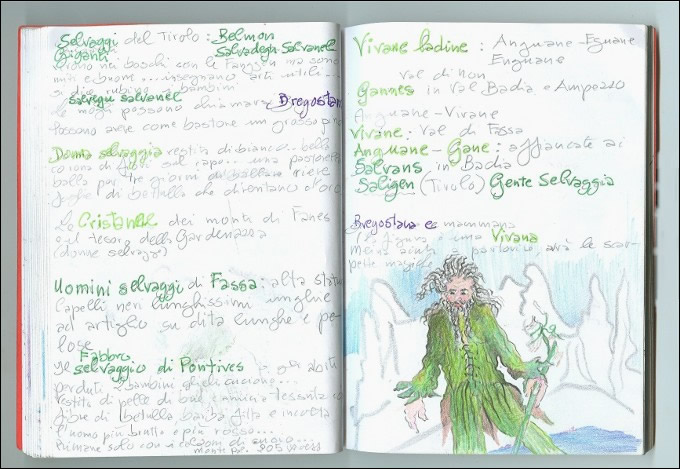 Selvaggi del Tirolo: Belmon
Giganti Salvadegh Salvanel
vivono nei boschi con le Fanggen ma sono
miti e buoni... insegnano arti utili...
si dice rubino bambini
Salvegu salvanel
le mogi possono chiamarsi Bregostan
Possono avere come bastone un grosso pino
Donna selvaggia vestita di bianco... bella
corona di fiori sul capo... una pastorella
balla per tre giorni di ballare riceve
foglie di betulla che diventano d'oro
Le Cristanne dei monti di Fanes
e il tesoro della Gardenazza
(donne selvagge)
Uomini selvaggi di Fassa: alta statura
Capelli neri lunghissimi unghie
ad artiglio su dita lunghe e pe-
lose
Il Fabbro
selvaggio di Pontives gli abiti
perduti i bambini glieli cuciono...
vestito di pelle di
fibre di betulla barba alta e incolta
l'uomo più brutto e più rosso...
Rimane solo con i calzoni di
Vivane ladine: Anguane Eguane
Enguane
val di non
Gannes in Val Badia e Ampezzo
Anguane-Vivane
Vivane: Val di Fassa
Anguane-Gane: affiancate ai
Salvans in Badia
Saligen (Tirolo) Gente Selvaggia
Bregostana e mammana
la figura è una Vivana
Mena aiuta a partorire, avrà le scar-
pette magiche